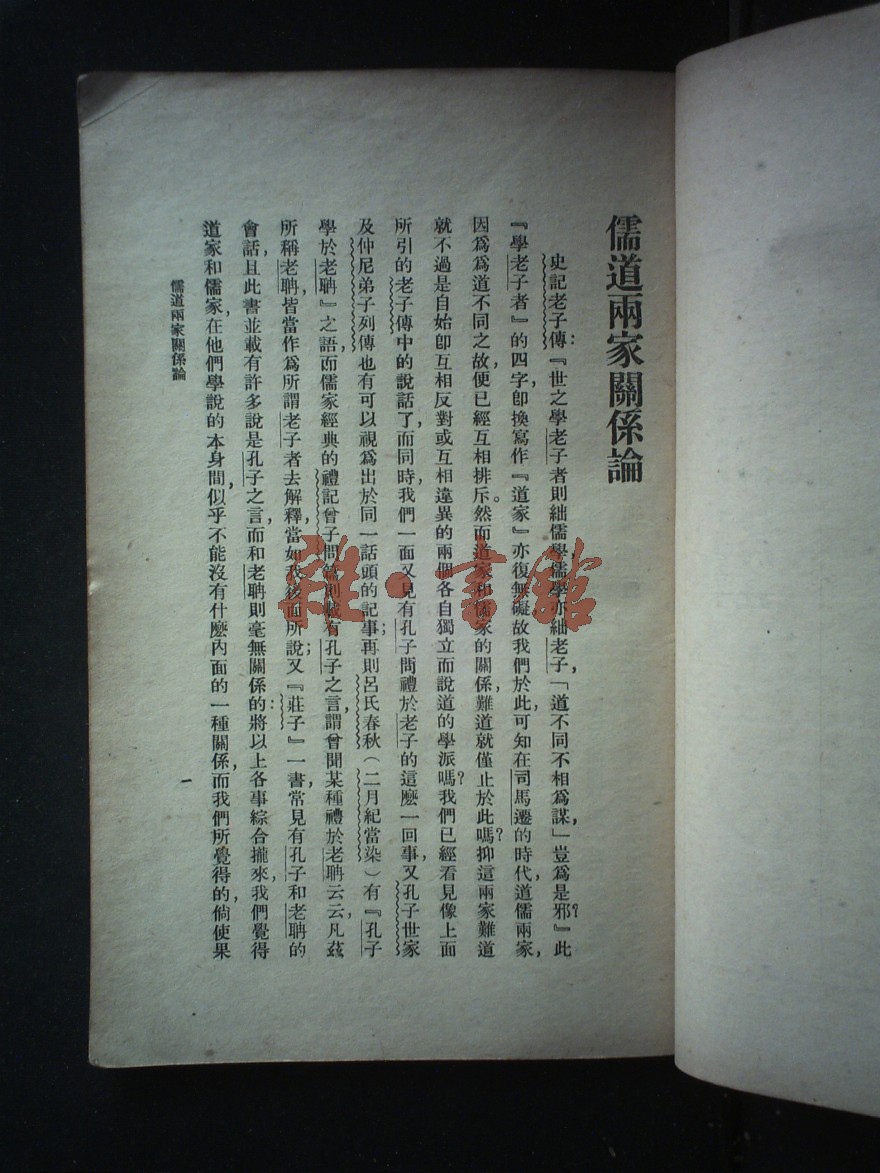 儒道兩家關係論
史記老子傳：『世之學老子者則絀儒學，儒學亦絀老子，「道不同不相爲謀，」豈爲是邪？』此
『學老子者』的四字，卽換寫作『道家』亦復無礙故我們於此，可知在司馬遷的時代，道儒兩家，
因爲爲道不同之故，便已經互相排斥。然而道家和儒家的關係，難道就僅止於此嗎？抑這兩家難道
就不過是自始卽互相反對或互相違異的兩個各自獨立而說道的學派嗎？我們已經看見像上面
所引的老子傳中的說話了，而同時，我們一面又見有孔子問禮於老子的這麽一回事，又孔子世家
及仲尼弟子列傳也有可以視爲出於同一話頭的記事；再則呂氏春秋（二月紀當染）有『孔子
學於老聃』之語，而儒家經典的禮記曾子問篇則載有孔子之言，謂曾聞某種禮於老聃云云，凡茲
所稱老聃，皆當作爲所謂老子者去解釋，當如我後面所說；又『莊子』一書，常見有孔子和老聃的
會話，且此書並載有許多說是孔子之言，而和老聃則毫無關係的：將以上各事綜合攏來，我們覺得
道家和儒家，在他們學說的本身間，似乎不能沒有什麽內面的一種關係，而我們所覺得的，倘使果
儒道兩家關係論
一
雜·書館